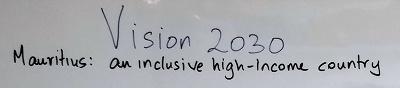 Vision 2030
Mauritius: an inclusive high-Income country